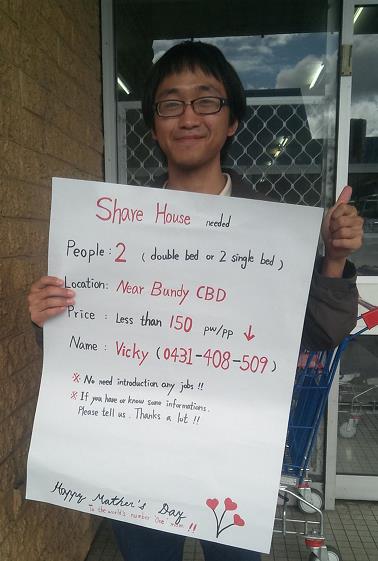 Share House needed
People : 2 ( double bed or 2 single bed )
Location : Near Bundy CBD
Price : Less than 150 pw/pp ↓
Name : Vicky (0431-408-509)
※ No need introduction any jobs !!
※ If you have or know some informations.
Please tell us. Thanks a lot !!
Happy Mather's Day
To the world's number "One" mom !!